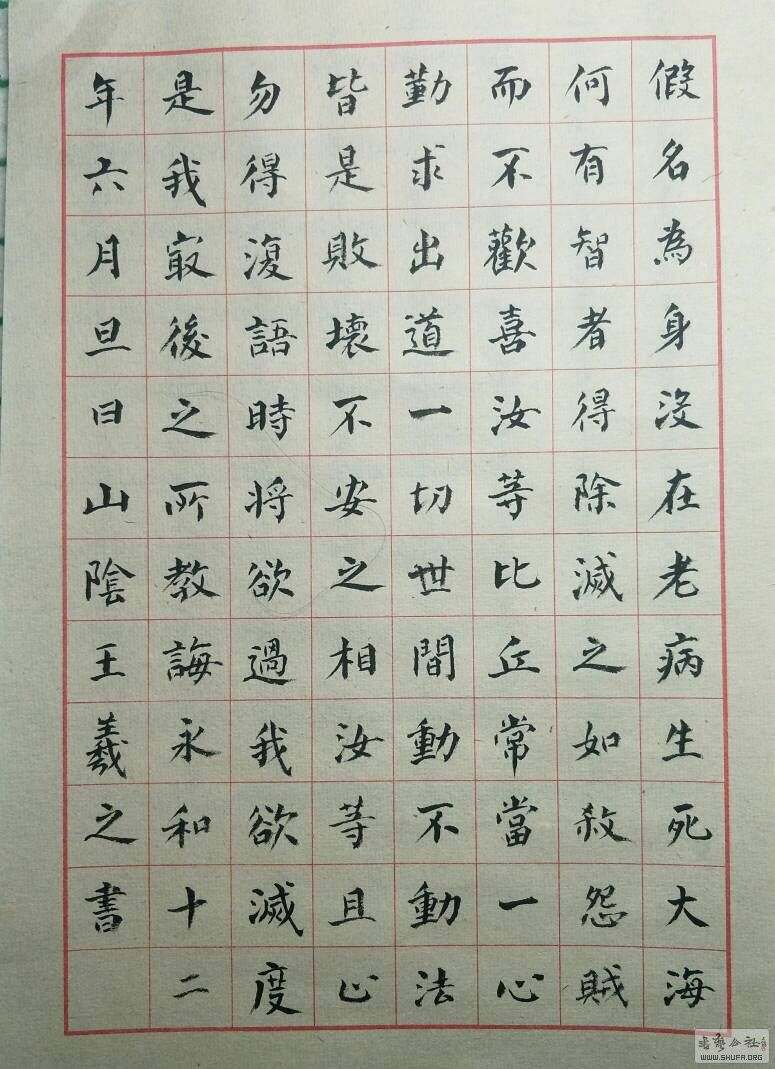 假名為身沒在老病生死大海
何有智者得除滅之如殺怨賊
而不歡喜汝等比丘常當一心
勤求出道一切世間動不動法
皆是敗壞不安之相汝等且止
勿得復語時將欲過我欲滅度
是我最後之所教誨永和十二
年六月旦日山陰王羲之書
WWW.SHUFA.ORG